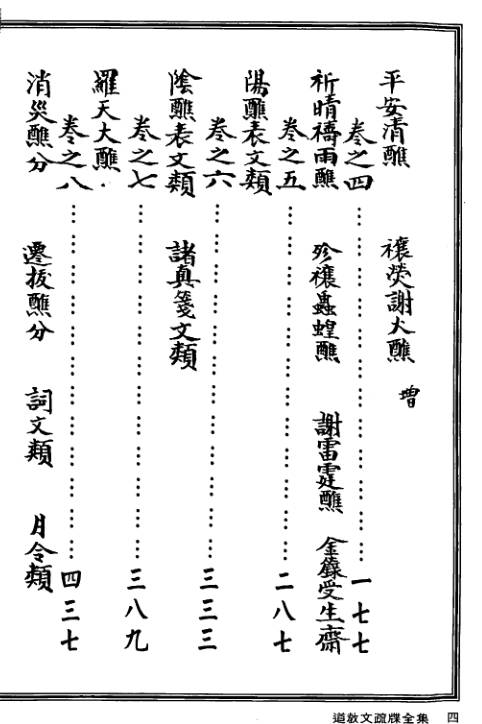 平安清醮 禳熒謝火醮 增
卷之四……一七七
祈晴禱雨醮 殄禳蟲蝗醮 謝雷霆醮 金籙受生齋
卷之五……二八七
陽醮表文類
卷之六……三三三
陰醮表文類 諸真箋文類
卷之七……三八九
羅天大醮
卷之八……四三七
消災醮分 遷拔醮分 詞文類 月令類
道教文疏牒全集 四